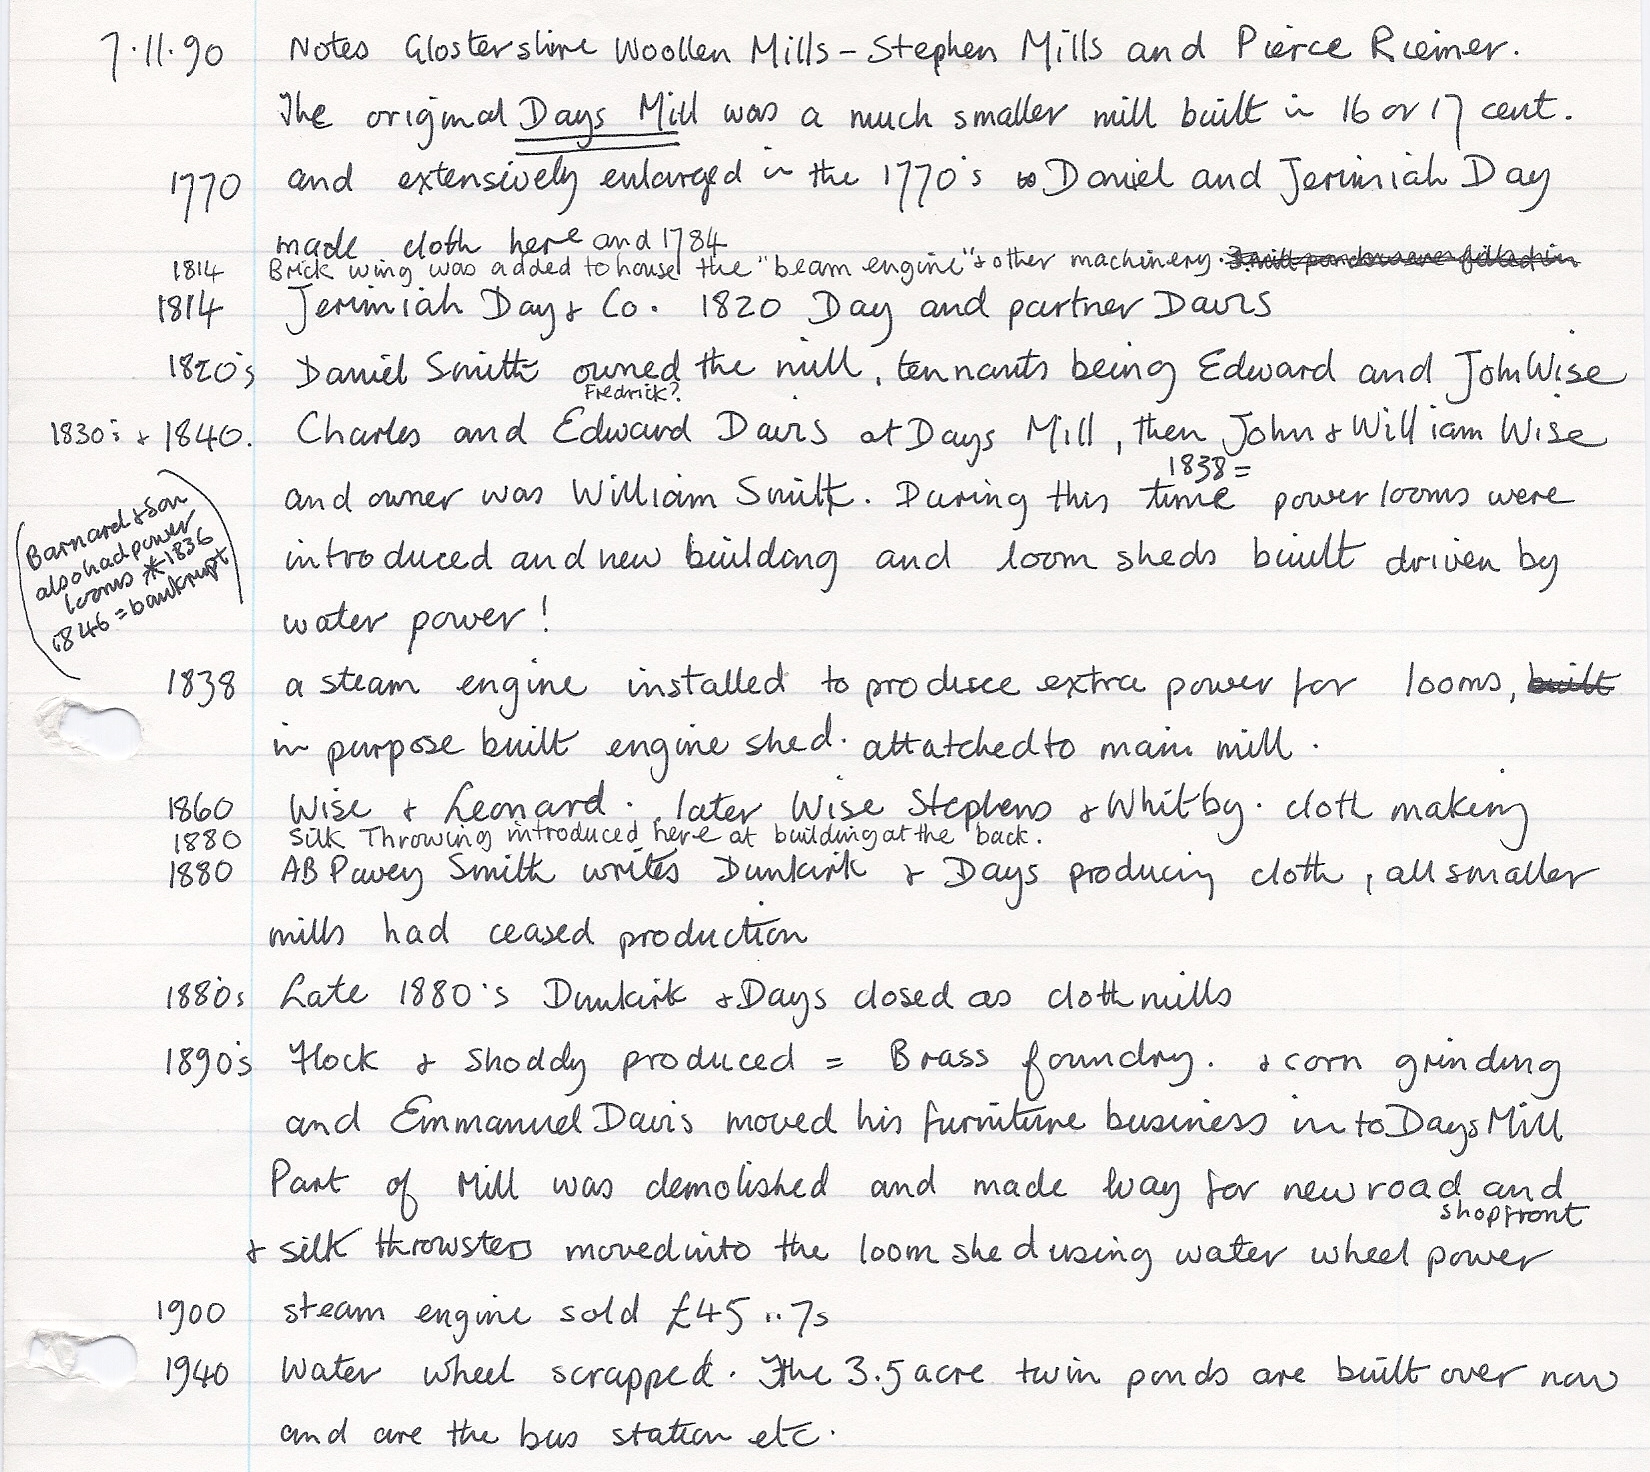 7.11.90 Notes Glostershire Woollen Mills - Stephen Mills and Pierce Riemer.
The original Days Mill was a much smaller mill built in 16 or 17 cent.
1770 and extensively enlarged in the 1770's Daniel and Jerimiah Day
made cloth here and 1784
1814 Brick wing was added to house the "beam engine" & other machinery. 3 mill ponds were filled in
1814 Jerimiah Day & Co. 1820 Day and partner Davis
1820's Daniel Smith owned the mill, tennants being Edward and John Wise
Fredrick?
1830s & 1840. Charles and Edward Davis at Days Mill, then John & William Wise
1838 =
and owner was William Smith. During this time power looms were
introduced and new building and loom sheds built driven by
water power!
(Barnard & Son
also had power
looms * 1836
1846 = bankrupt)
1838 a steam engine installed to produce extra power for looms, built
in purpose built engine shed. attatched to main mill.
1860 Wise & Leonard. later Wise Stephens & Whitby. cloth making
1880 Silk Throwing introduced here at building at the back.
1880 AB Pavey Smith writes Dunkirk & Days producing cloth, all smaller
mills had ceased production
1880s Late 1880's Dunkirk & Days closed as cloth mills
1890's Flock & Shoddy produced = Brass foundry. & corn grinding
and Emmanuel Davis moved his furniture business in to Days Mill
Part of Mill was demolished and made way for new road and
shopfront
& silk throwsters moved into the loom shed using water wheel power
1900 steam engine sold £45..7s
1940 Water wheel scrapped. The 3.5 acre twin ponds are built over now
and are the bus station etc.